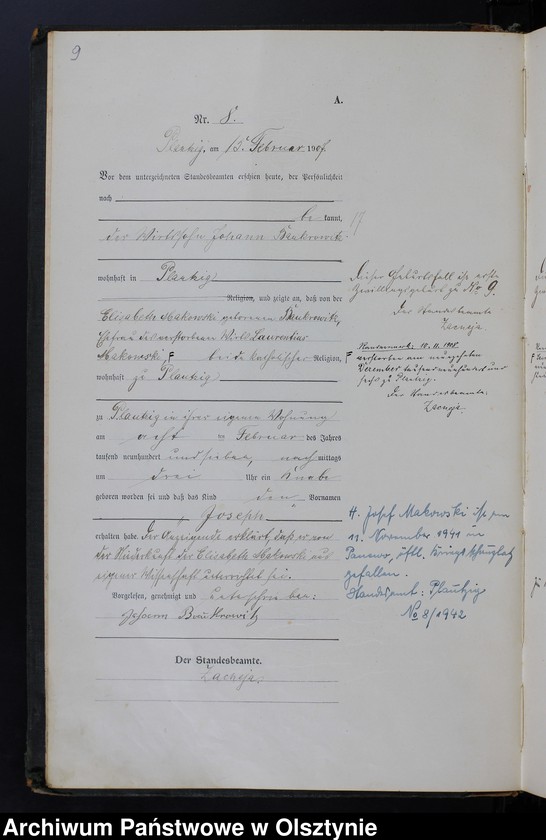 9
A.
Nr. 8.
am 13. Februar 1907.
Vor dem unterzeichneten Standesbeamten erschien heute, der Persönlichkeit
nach
be kannt,
der Wirthssohn Johann
wohnhaft in Plautzig
Religion, und zeigte an, daß von der
Elisabeth Makowski geborenen
Ehefrau des verstorbenen Wirth Laurentius
Makowski, beide katholischer Religion,
wohnhaft zu Plautzig
zu Plautzig in ihrer eigenen Wohnung
am acht en Februar des Jahres
tausend neunhundert und sieben, nach mittags
um drei Uhr ein Knabe
geboren worden sei und daß das Kind den Vornamen
Joseph
erhalten habe. Der Anzeigende erklärt, daß er von
der Niederkunft der Elisabeth Makowski aus
eigener Wissenschaft unterrichtet sei.
Vorgelesen, genehmigt und unterschrieben:
Johann
Der Standesbeamte.
Dieser Geburtsfall ist erste
Zwillingsgeburt zu No 9.
Der Standesbeamte
verstorben am
Dezember
Der Standesbeamte.
H. Josef Makowski ist am
11. November 1941 in
östl. Kriegsschauplatz
gefallen.
Standesamt: Plautzig
No 8/1942
Archiwum Państwowe w Olsztynie